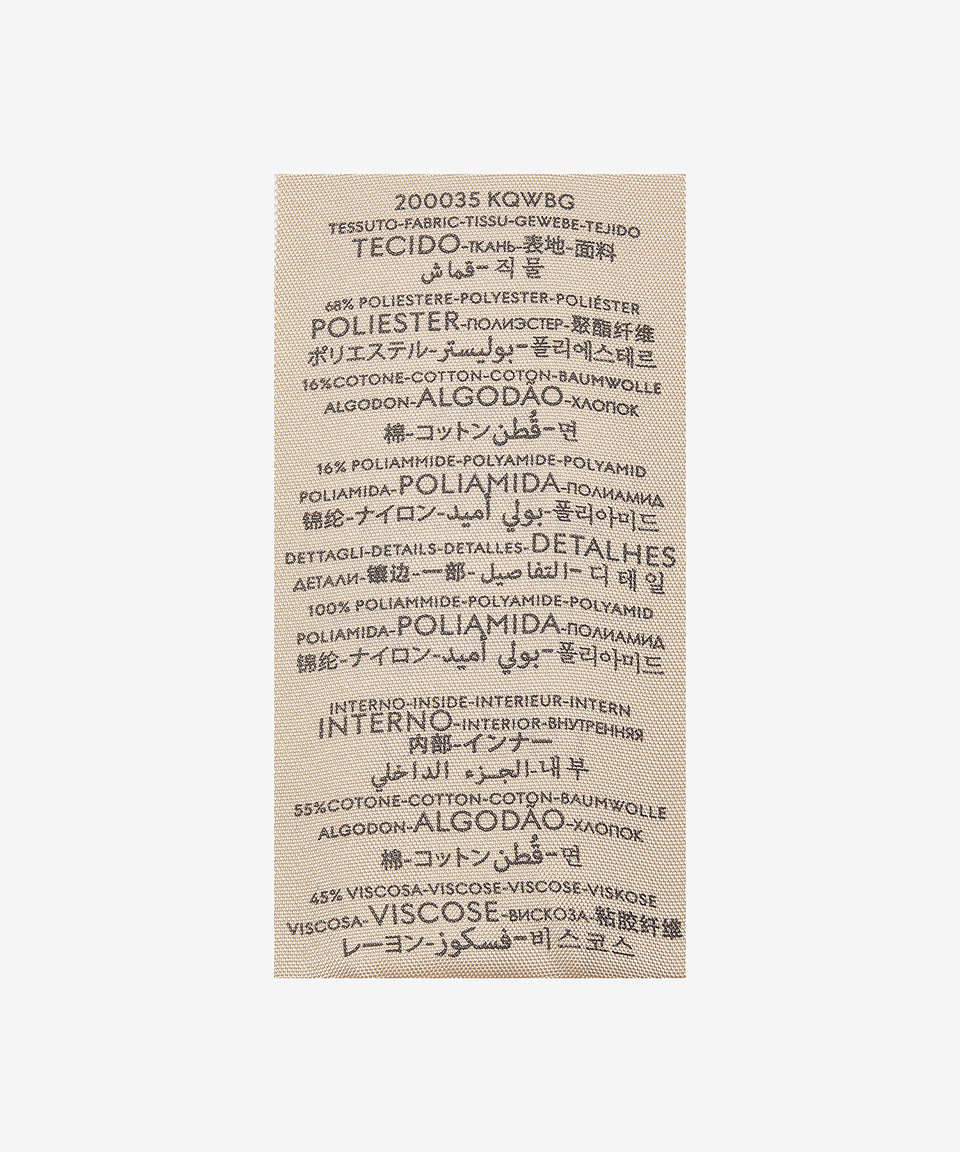 200035 KQWBG
TESSUTO-FABRIC-TISSU-GEWEBE-TEJIDO
TECIDO-ТКАНЬ-表地-面料
قماش-직물
68% POLIESTERE-POLYESTER-POLIÉSTER
POLIESTER-ПОЛИЭСТЕР-聚酯纤维
ポリエステル-بوليستر-폴리에스테르
16%COTONE-COTTON-COTON-BAUMWOLLE
ALGODON-ALGODÃO-ХЛОПОК
棉-コットン قُطن-면
16% POLIAMMIDE-POLYAMIDE-POLYAMID
POLIAMIDA-POLIAMIDA-ПОЛИАМИД
锦纶-ナイロン-بولي أميد-폴리아미드
DETTAGLI-DETAILS-DETALLES-DETALHES
ДЕТАЛИ-镶边-一部-التفاصيل-디테일
100% POLIAMMIDE-POLYAMIDE-POLYAMID
POLIAMIDA-POLIAMIDA-ПОЛИАМИД
锦纶-ナイロン-بولي أميد-폴리아미드
INTERNO-INSIDE-INTERIEUR-INTERN
INTERNO-INTERIOR-ВНУТРЕННЯЯ
内部-インナー
الجزء الداخلي-내부
55%COTONE-COTTON-COTON-BAUMWOLLE
ALGODON-ALGODÃO-ХЛОПОК
棉-コットン قُطن-면
45% VISCOSA-VISCOSE-VISCOSE-VISKOSE
VISCOSA-VISCOSE-ВИСКОЗА-粘胶纤维
レーヨン-فسكوز-비스코스